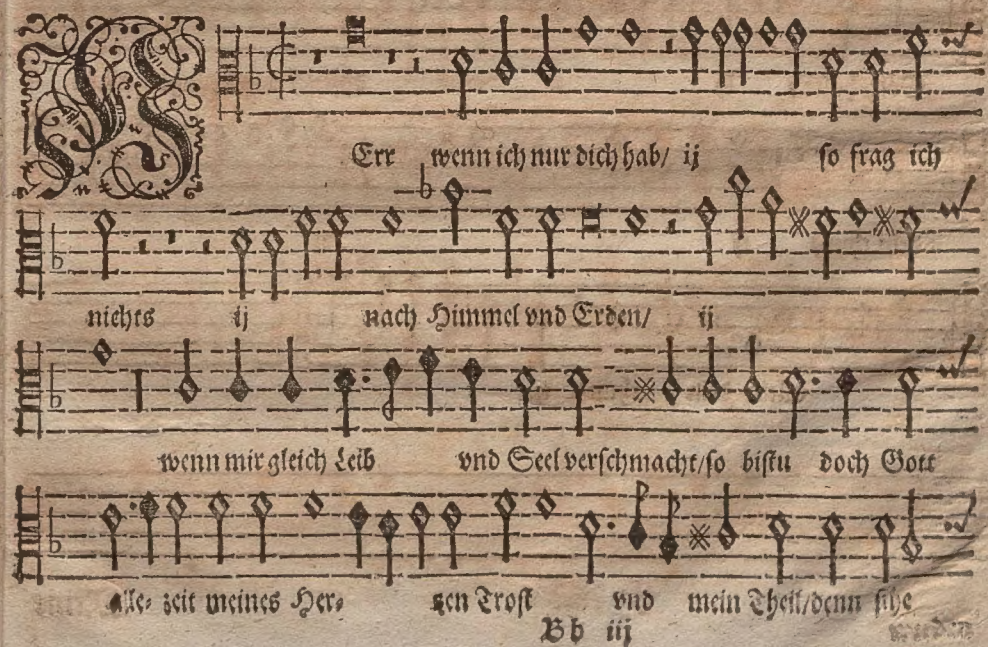 HErr wenn ich nur dich hab/ ij so frag ich
nichts ij nach Himmel vnd Erden/ ij
wenn mir gleich Leib vnd Seel verschmacht/so bistu doch Gott
alle- zeit meines Her- zen Trost vnd mein Theil/denn sihe
Bb iij